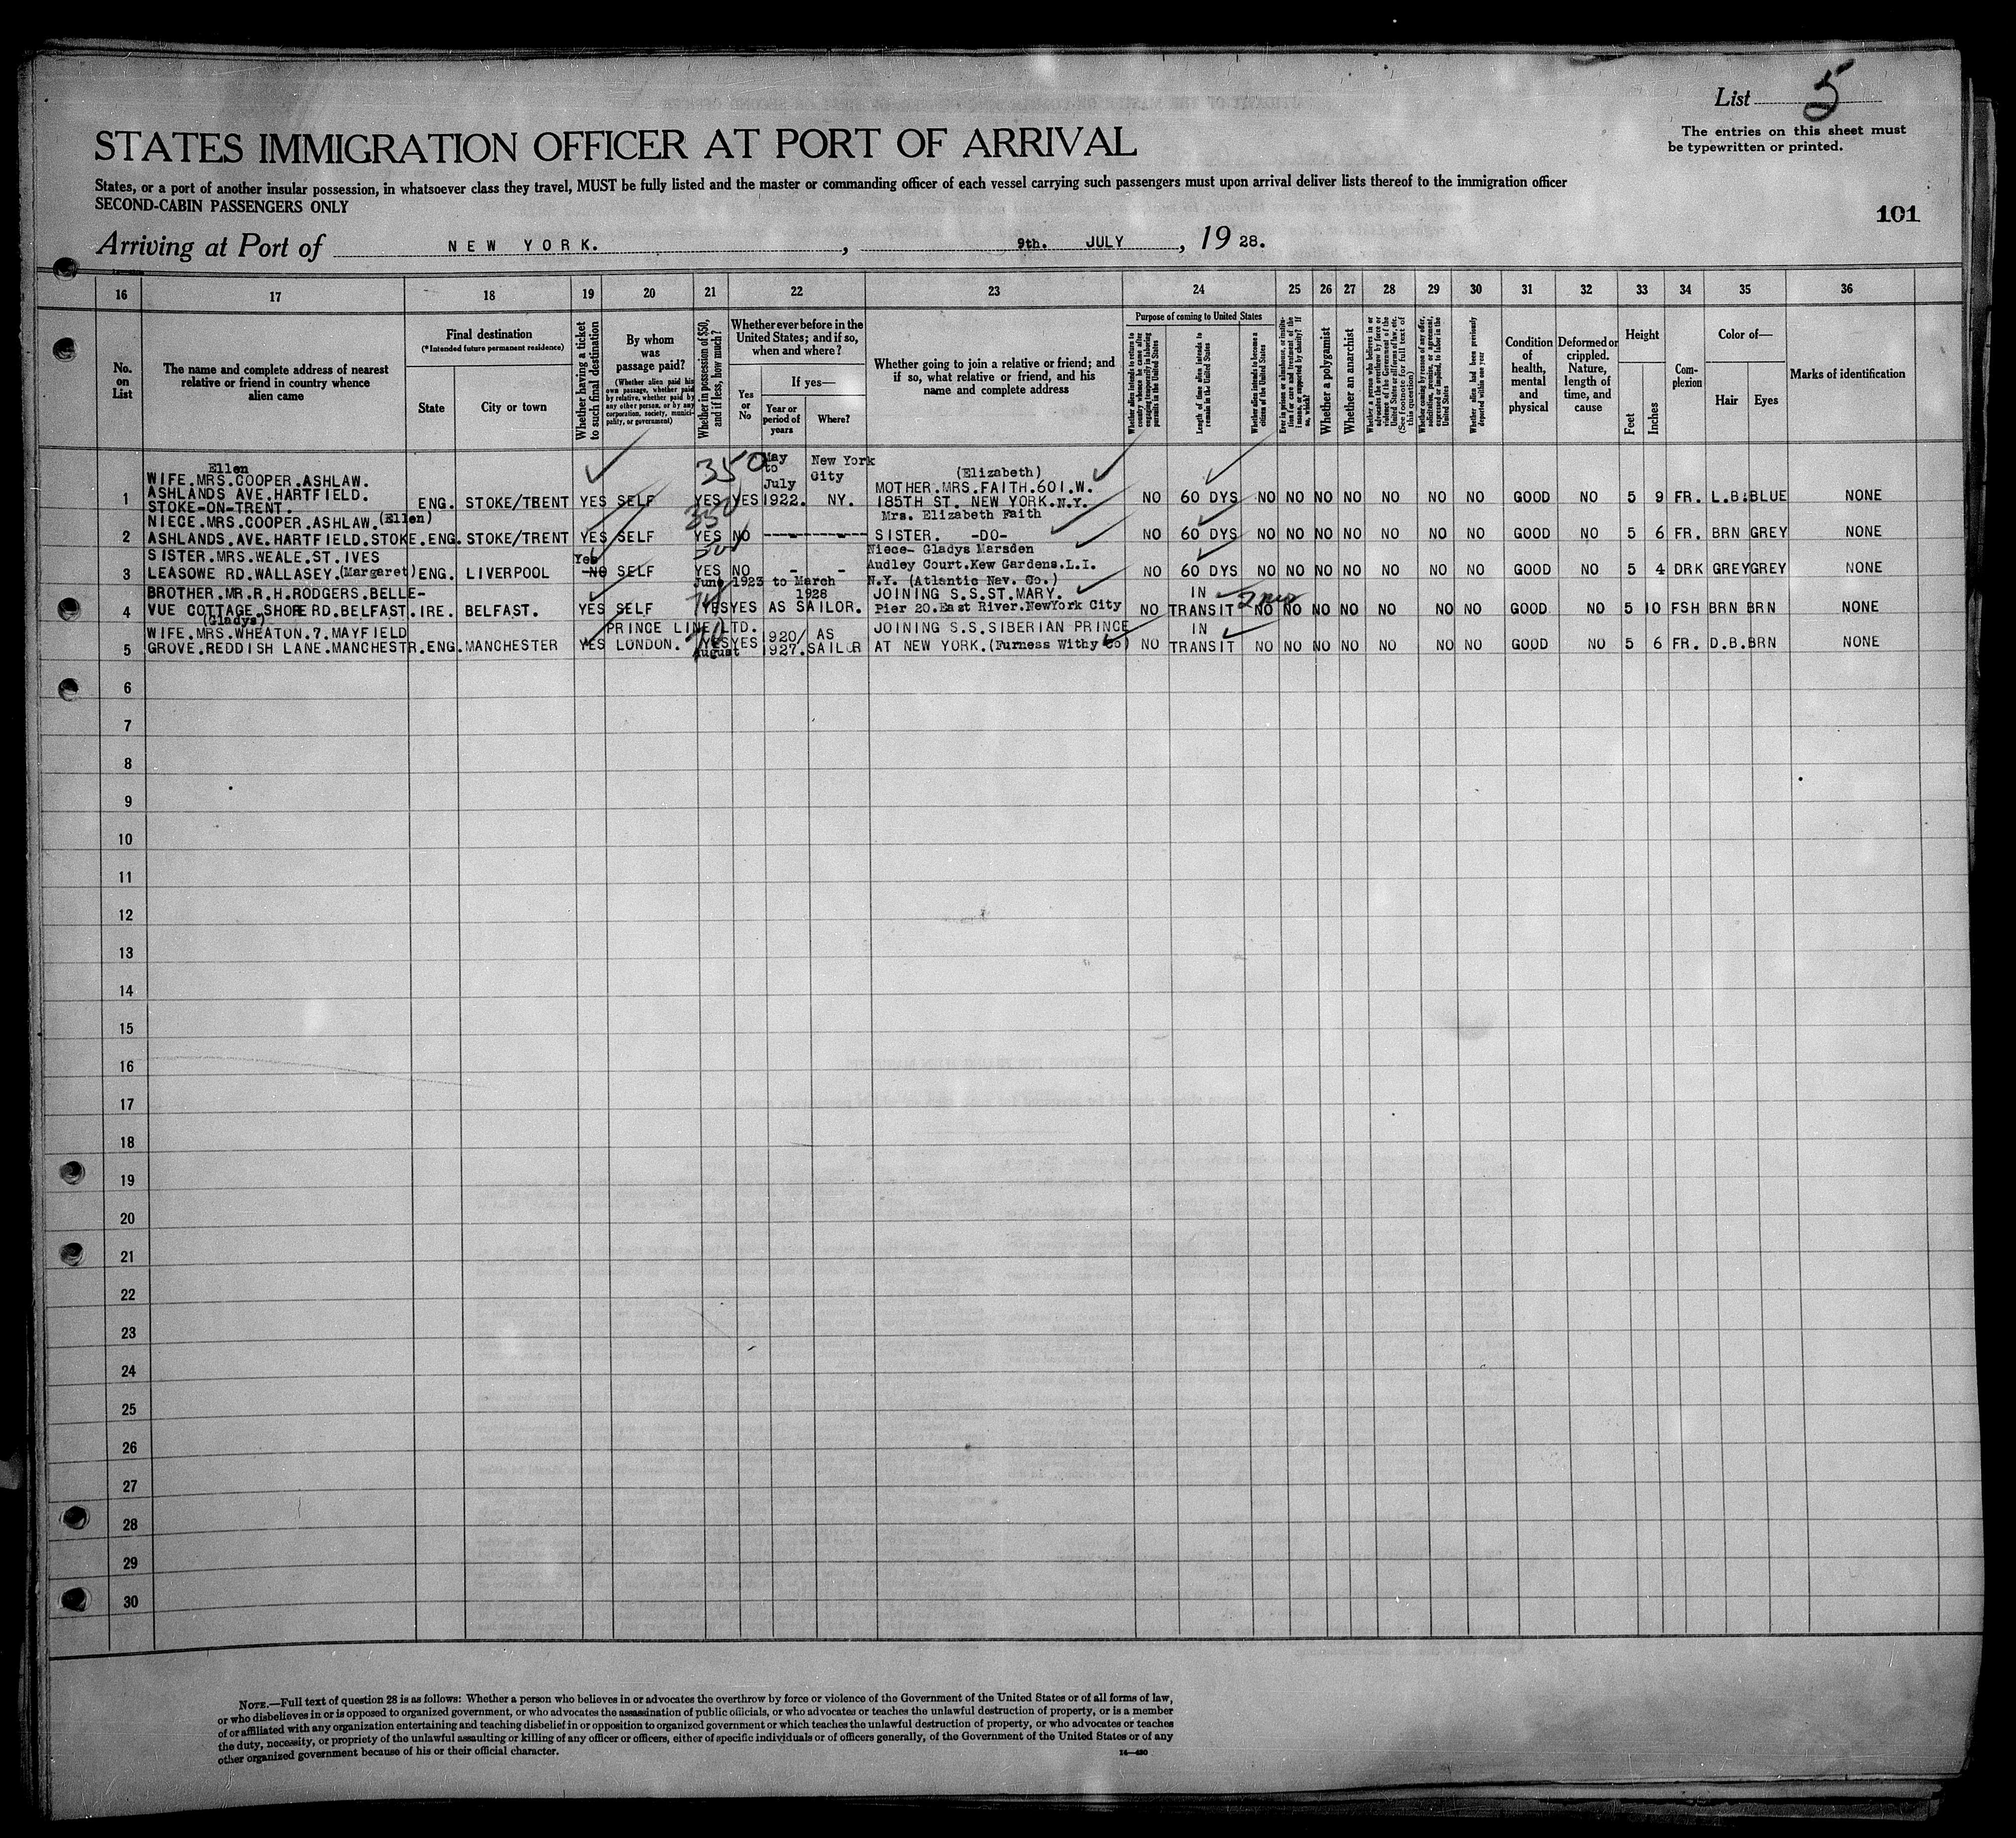 List 5
The entries on this sheet must
be typewritten or printed.
STATES IMMIGRATION OFFICER AT PORT OF ARRIVAL
States, or a port of another insular possession, in whatsoever class they travel, MUST be fully listed and the master or commanding officer of each vessel carrying such passengers must upon arrival deliver lists thereof to the immigration officer
SECOND-CABIN PASSENGERS ONLY
101
Arriving at Port of NEW YORK. , 9th. JULY , 19 28.
16 17 18 19 20 21 22 23 24 25 26 27 28 29 30 31 32 33 34 35 36
No. on List
The name and complete address of nearest relative or friend in country whence alien came
Final destination
(*Intended future permanent residence)
State
City or town
Whether having a ticket to such final destination
By whom was passage paid?
(Whether alien paid his own passage, whether paid by relative, whether paid by any other person, or by any corporation, society, municipality, or government)
Whether in possession of $50, and if less, how much?
Whether ever before in the United States; and if so, when and where?
Yes or No
If yes—
Year or period of years
Where?
Whether going to join a relative or friend; and if so, what relative or friend, and his name and complete address
Purpose of coming to United States
Whether alien intends to return to country whence he came after engaging temporarily in laboring pursuits in the United States
Length of time alien intends to remain in the United States
Whether alien intends to become a citizen of the United States
Ever in prison or almshouse, or institution for care and treatment of the insane, or supported by charity? If so, which?
Whether a polygamist
Whether an anarchist
Whether a person who believes in or advocates the overthrow by force or violence of the Government of the United States or all forms of law, etc. (See footnote for full text of this question)
Whether coming by reason of any offer, solicitation, promise, or agreement, expressed or implied, to labor in the United States
Whether alien had been previously deported within one year
Condition of health, mental and physical
Deformed or crippled. Nature, length of time, and cause
Height
Feet
Inches
Complexion
Color of—
Hair
Eyes
Marks of identification
Ellen
WIFE.MRS.COOPER.ASHLAW. 350 May to July New York City (Elizabeth)
ASHLANDS AVE.HARTFIELD. MOTHER.MRS.FAITH.601.W.
1 STOKE-ON-TRENT. ENG. STOKE/TRENT YES SELF YES YES 1922. NY. 185TH ST. NEW YORK.N.Y. NO 60 DYS NO NO NO NO NO NO NO GOOD NO 5 9 FR. L.B. BLUE NONE
NIECE.MRS.COOPER.ASHLAW.(Ellen) 350 Mrs. Elizabeth Faith
2 ASHLANDS.AVE.HARTFIELD.STOKE. ENG. STOKE/TRENT YES SELF YES NO SISTER. -DO- NO 60 DYS NO NO NO NO NO NO NO GOOD NO 5 6 FR. BRN GREY NONE
SISTER.MRS.WEALE.ST.IVES Yes 50 Niece- Gladys Marsden
Audley Court.Kew Gardens.L.I.
3 LEASOWE RD.WALLASEY.(Margaret) ENG. LIVERPOOL NO SELF YES NO - - N.Y. (Atlantic Nav. Co.) NO 60 DYS NO NO NO NO NO NO NO GOOD NO 5 4 DRK GREY GREY NONE
BROTHER.MR.R.H.RODGERS.BELLE- June 1923 to March 1928 JOINING S.S.ST.MARY. IN
4 VUE COTTAGE.SHORE RD.BELFAST. IRE. BELFAST. YES SELF YES YES AS SAILOR. Pier 20.East River.NewYork City NO TRANSIT NO NO NO NO NO NO NO GOOD NO 5 10 FSH BRN BRN NONE
(Gladys)
WIFE.MRS.WHEATON.7.MAYFIELD PRINCE LINE LTD. 1920/ AS JOINING S.S.SIBERIAN PRINCE IN
5 GROVE.REDDISH LANE.MANCHESTR. ENG. MANCHESTER YES LONDON. YES YES 1927. SAILOR AT NEW YORK.(Furness Withy Co) NO TRANSIT NO NO NO NO NO NO NO GOOD NO 5 6 FR. D.B. BRN NONE
August
6
7
8
9
10
11
12
13
14
15
16
17
18
19
20
21
22
23
24
25
26
27
28
29
30
NOTE.—Full text of question 28 is as follows: Whether a person who believes in or advocates the overthrow by force or violence of the Government of the United States or of all forms of law,
or who disbelieves in or is opposed to organized government, or who advocates the assassination of public officials, or who advocates or teaches the unlawful destruction of property, or is a member
of or affiliated with any organization entertaining and teaching disbelief in or opposition to organized government or which teaches the unlawful destruction of property, or who advocates or teaches
the duty, necessity, or propriety of the unlawful assaulting or killing of any officer or officers, either of specific individuals or of officers generally, of the Government of the United States or of any
other organized government because of his or their official character.